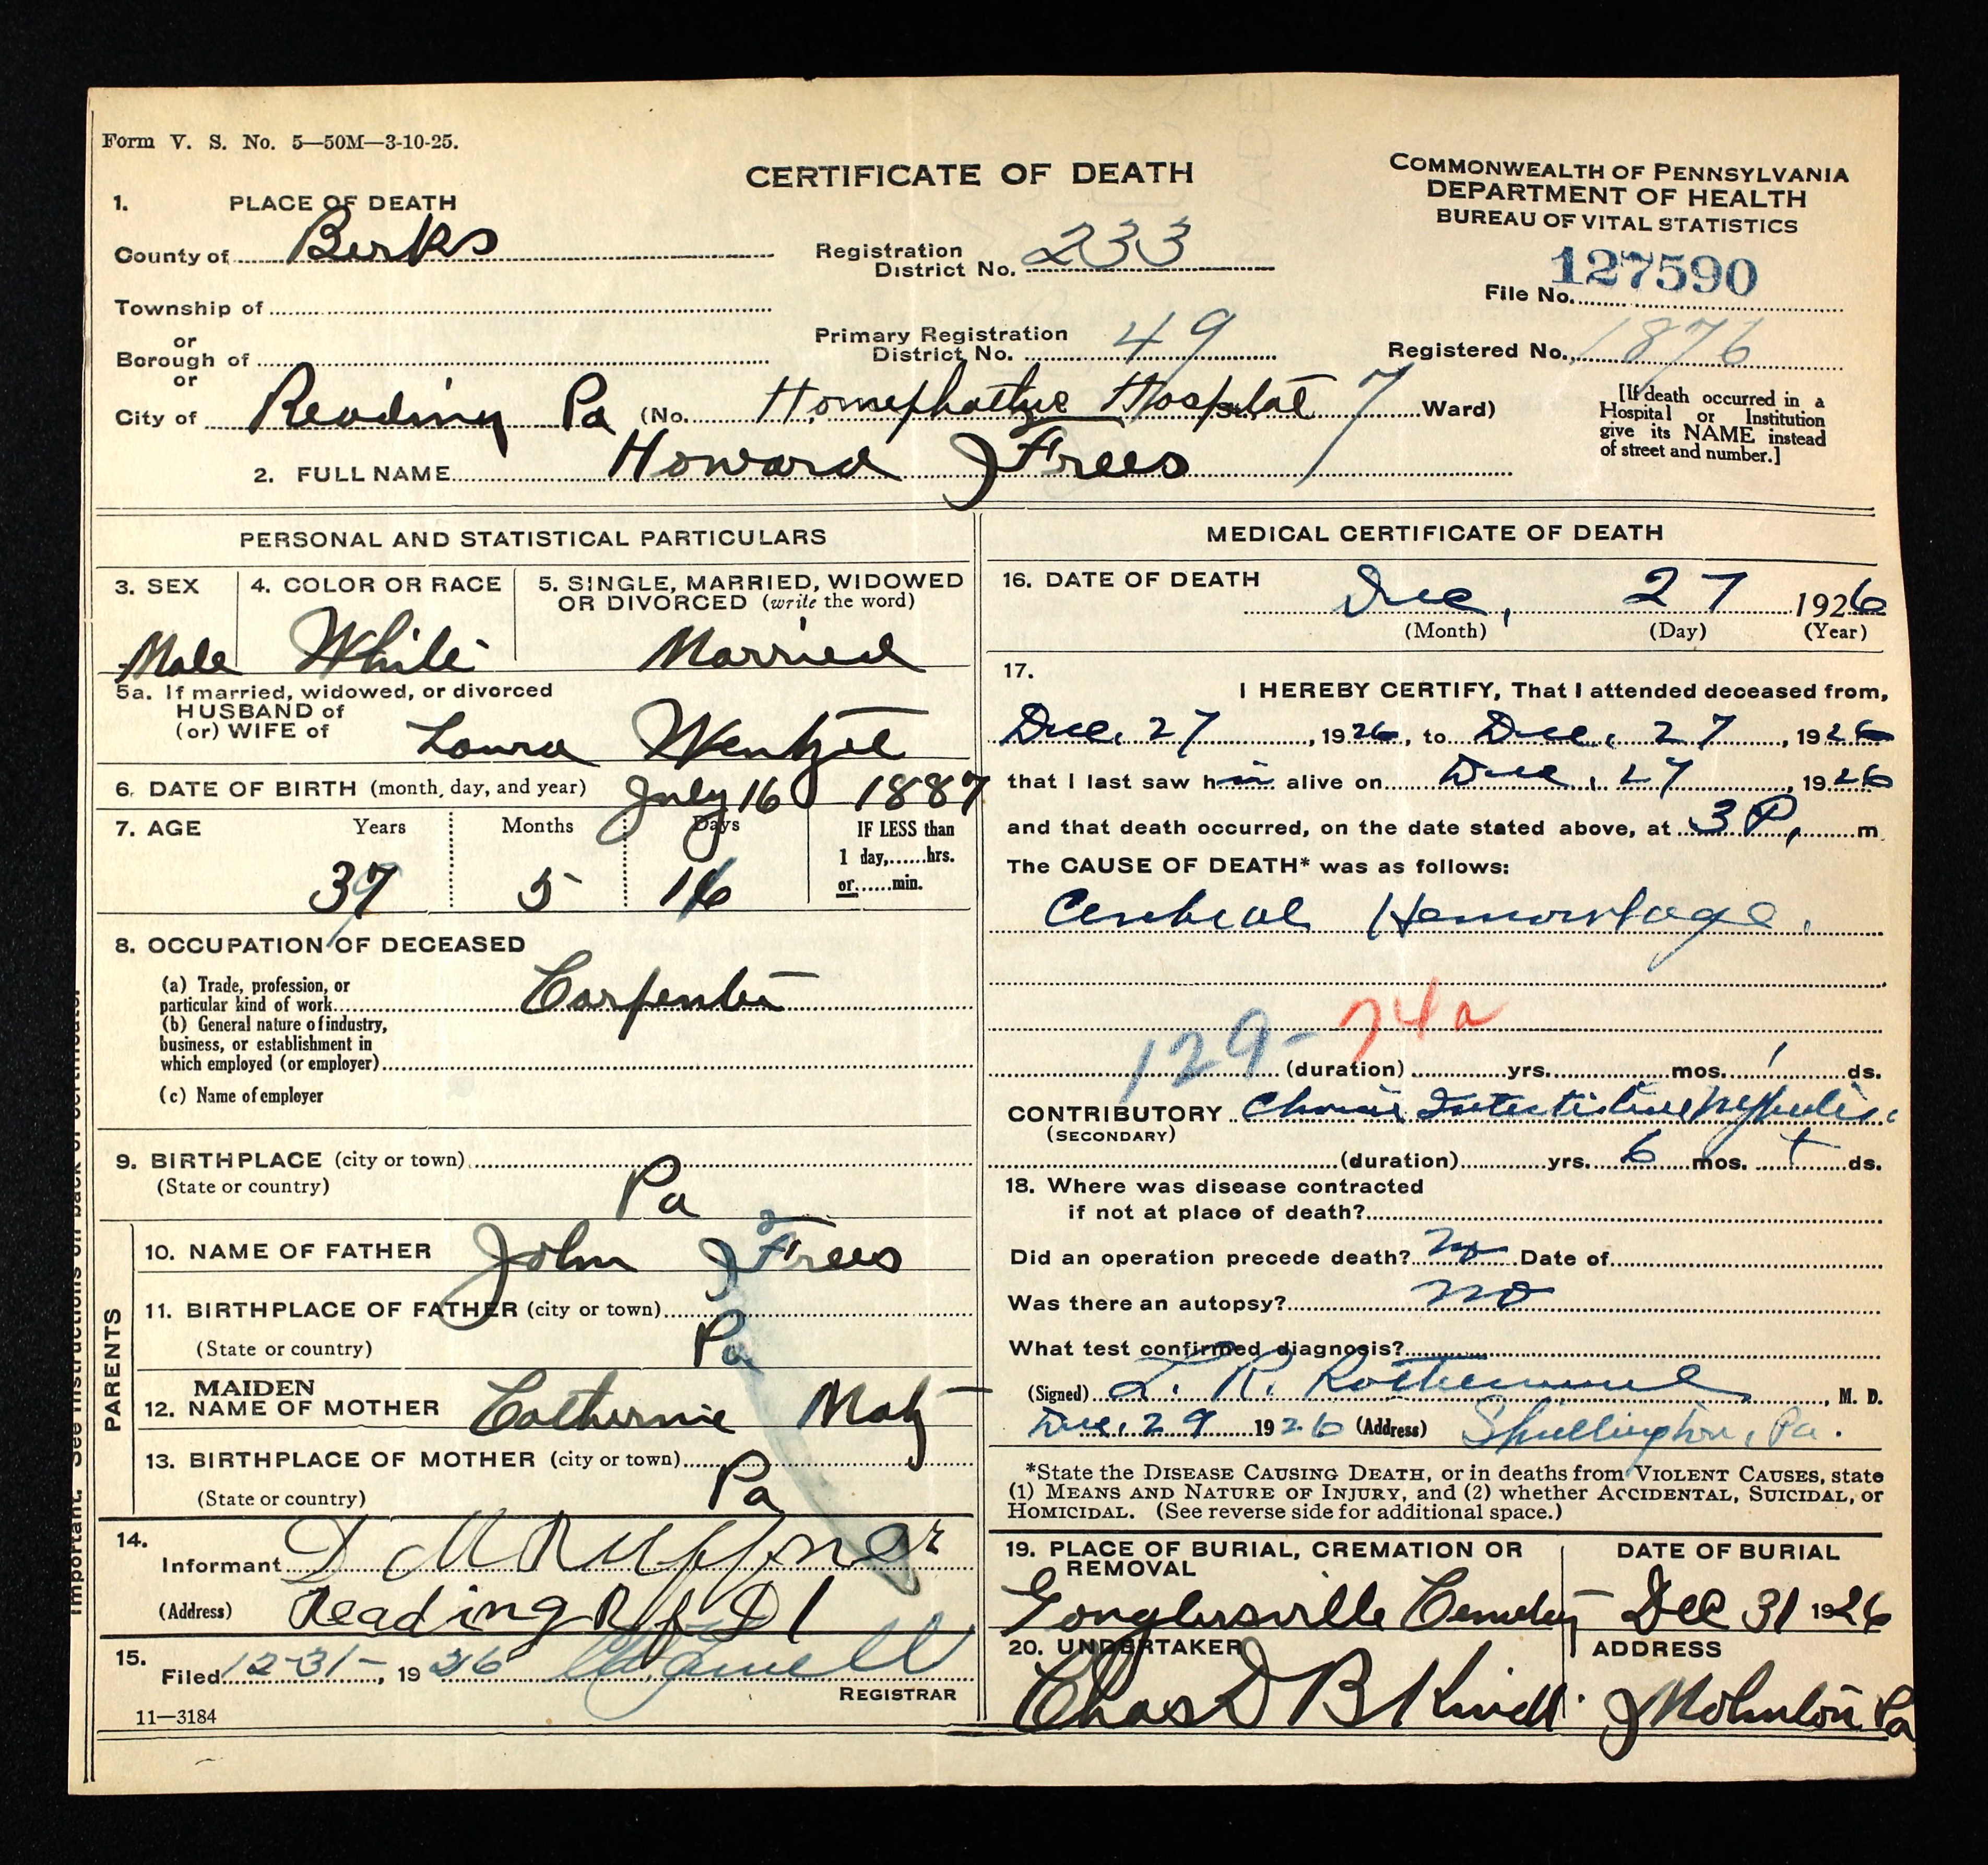 Form V. S. No. 5—50M—3-10-25.
CERTIFICATE OF DEATH
COMMONWEALTH OF PENNSYLVANIA
DEPARTMENT OF HEALTH
BUREAU OF VITAL STATISTICS
1. PLACE OF DEATH
County of Berks
Registration District No. 233
127590
File No.
Township of
or
Borough of
or
Primary Registration District No. 49
Registered No. 1876
City of Reading Pa (No. Homephathic Hospital 7 Ward)
[If death occurred in a Hospital or Institution give its NAME instead of street and number.]
2. FULL NAME Howard J Frees
PERSONAL AND STATISTICAL PARTICULARS
3. SEX
Male
4. COLOR OR RACE
White
5. SINGLE, MARRIED, WIDOWED OR DIVORCED (write the word)
Married
5a. If married, widowed, or divorced
HUSBAND of
(or) WIFE of Laura Wentzel
6. DATE OF BIRTH (month, day, and year) July 16 1887
7. AGE Years Months Days
IF LESS than
1 day,......hrs.
or......min.
5
8. OCCUPATION OF DECEASED
(a) Trade, profession, or particular kind of work Carpenter
(b) General nature of industry, business, or establishment in which employed (or employer)
(c) Name of employer
9. BIRTHPLACE (city or town)
(State or country) Pa
PARENTS
10. NAME OF FATHER John J Frees
11. BIRTHPLACE OF FATHER (city or town)
(State or country) Pa
12. MAIDEN NAME OF MOTHER Catherine
13. BIRTHPLACE OF MOTHER (city or town)
(State or country) Pa
14.
Informant D M Ruffner
(Address) Reading R f D 1
15.
Filed 12-31-, 1926
REGISTRAR
11—3184
Important. See instructions on back of certificate.
MEDICAL CERTIFICATE OF DEATH
16. DATE OF DEATH
Dec, 27 1926
(Month) (Day) (Year)
17.
I HEREBY CERTIFY, That I attended deceased from,
Dec. 27, 1926, to Dec. 27, 1926
that I last saw him alive on Dec. 27, 1926
and that death occurred, on the date stated above, at 3 P, m
The CAUSE OF DEATH* was as follows:
Cerebral Hemorrhage.
129- 74a
(duration) yrs. mos. 1 ds.
CONTRIBUTORY Chronic Interstitial Nephritis.
(SECONDARY)
(duration) yrs. 6 mos. + ds.
18. Where was disease contracted
if not at place of death?
Did an operation precede death? no Date of
Was there an autopsy? no
What test confirmed diagnosis?
(Signed) L. R. Rothermel, M. D.
Dec. 29 1926 (Address) Shillington, Pa.
*State the DISEASE CAUSING DEATH, or in deaths from VIOLENT CAUSES, state
(1) MEANS AND NATURE OF INJURY, and (2) whether ACCIDENTAL, SUICIDAL, or
HOMICIDAL. (See reverse side for additional space.)
19. PLACE OF BURIAL, CREMATION OR REMOVAL
Gouglersville Cemetery
DATE OF BURIAL
Dec 31 1926
20. UNDERTAKER
Chas D B
ADDRESS
Mohnton Pa